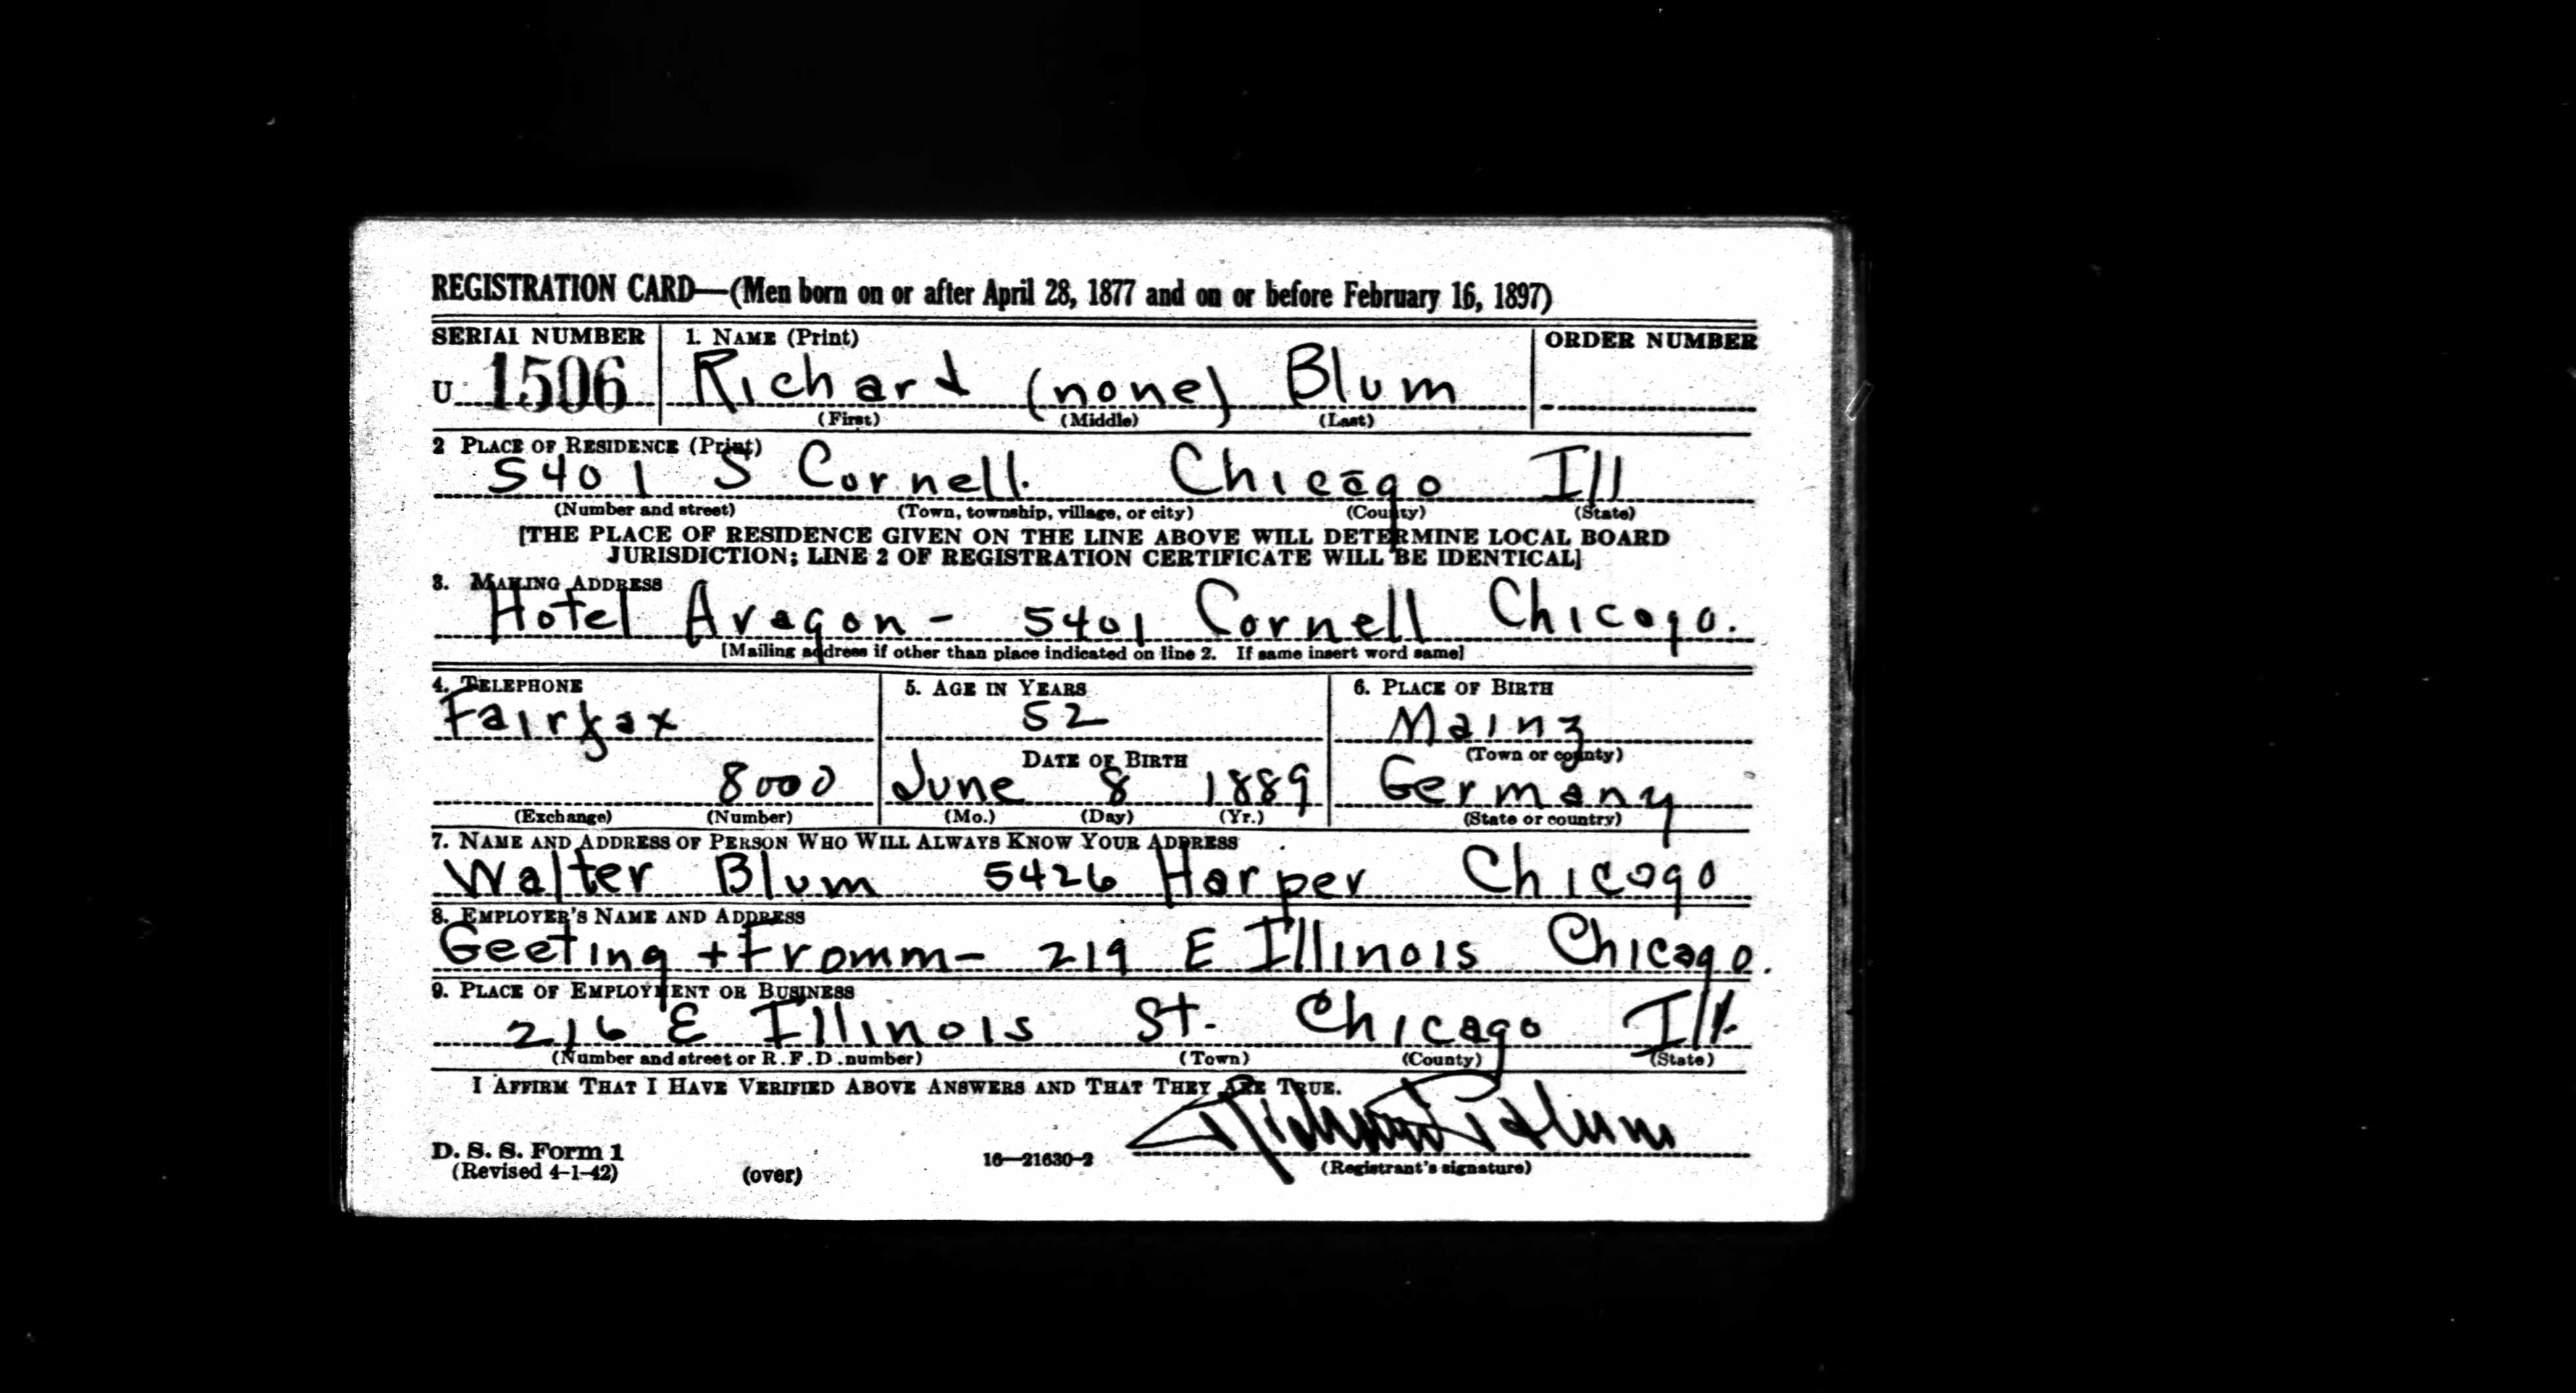 REGISTRATION CARD—(Men born on or after April 28, 1877 and on or before February 16, 1897)
SERIAL NUMBER 1. NAME (Print) ORDER NUMBER
U 1506 Richard (none) Blum
(First) (Middle) (Last)
2 PLACE OF RESIDENCE (Print)
5401 S Cornell. Chicago Ill
(Number and street) (Town, township, village, or city) (County) (State)
[THE PLACE OF RESIDENCE GIVEN ON THE LINE ABOVE WILL DETERMINE LOCAL BOARD
JURISDICTION; LINE 2 OF REGISTRATION CERTIFICATE WILL BE IDENTICAL]
3. MAILING ADDRESS
Hotel Aragon - 5401 Cornell Chicago.
[Mailing address if other than place indicated on line 2. If same insert word same]
4. TELEPHONE 5. AGE IN YEARS 6. PLACE OF BIRTH
Fairfax 52 Mainz
DATE OF BIRTH (Town or county)
8000 June 8 1889 Germany
(Exchange) (Number) (Mo.) (Day) (Yr.) (State or country)
7. NAME AND ADDRESS OF PERSON WHO WILL ALWAYS KNOW YOUR ADDRESS
Walter Blum 5426 Harper Chicago
8. EMPLOYER'S NAME AND ADDRESS
Geeting + Fromm - 219 E Illinois Chicago.
9. PLACE OF EMPLOYMENT OR BUSINESS
216 E Illinois St. Chicago Ill.
(Number and street or R. F. D. number) (Town) (County) (State)
I AFFIRM THAT I HAVE VERIFIED ABOVE ANSWERS AND THAT THEY ARE TRUE.
Richard Blum
D. S. S. Form 1
(Revised 4-1-42) (over) 16—21630-2 (Registrant's signature)